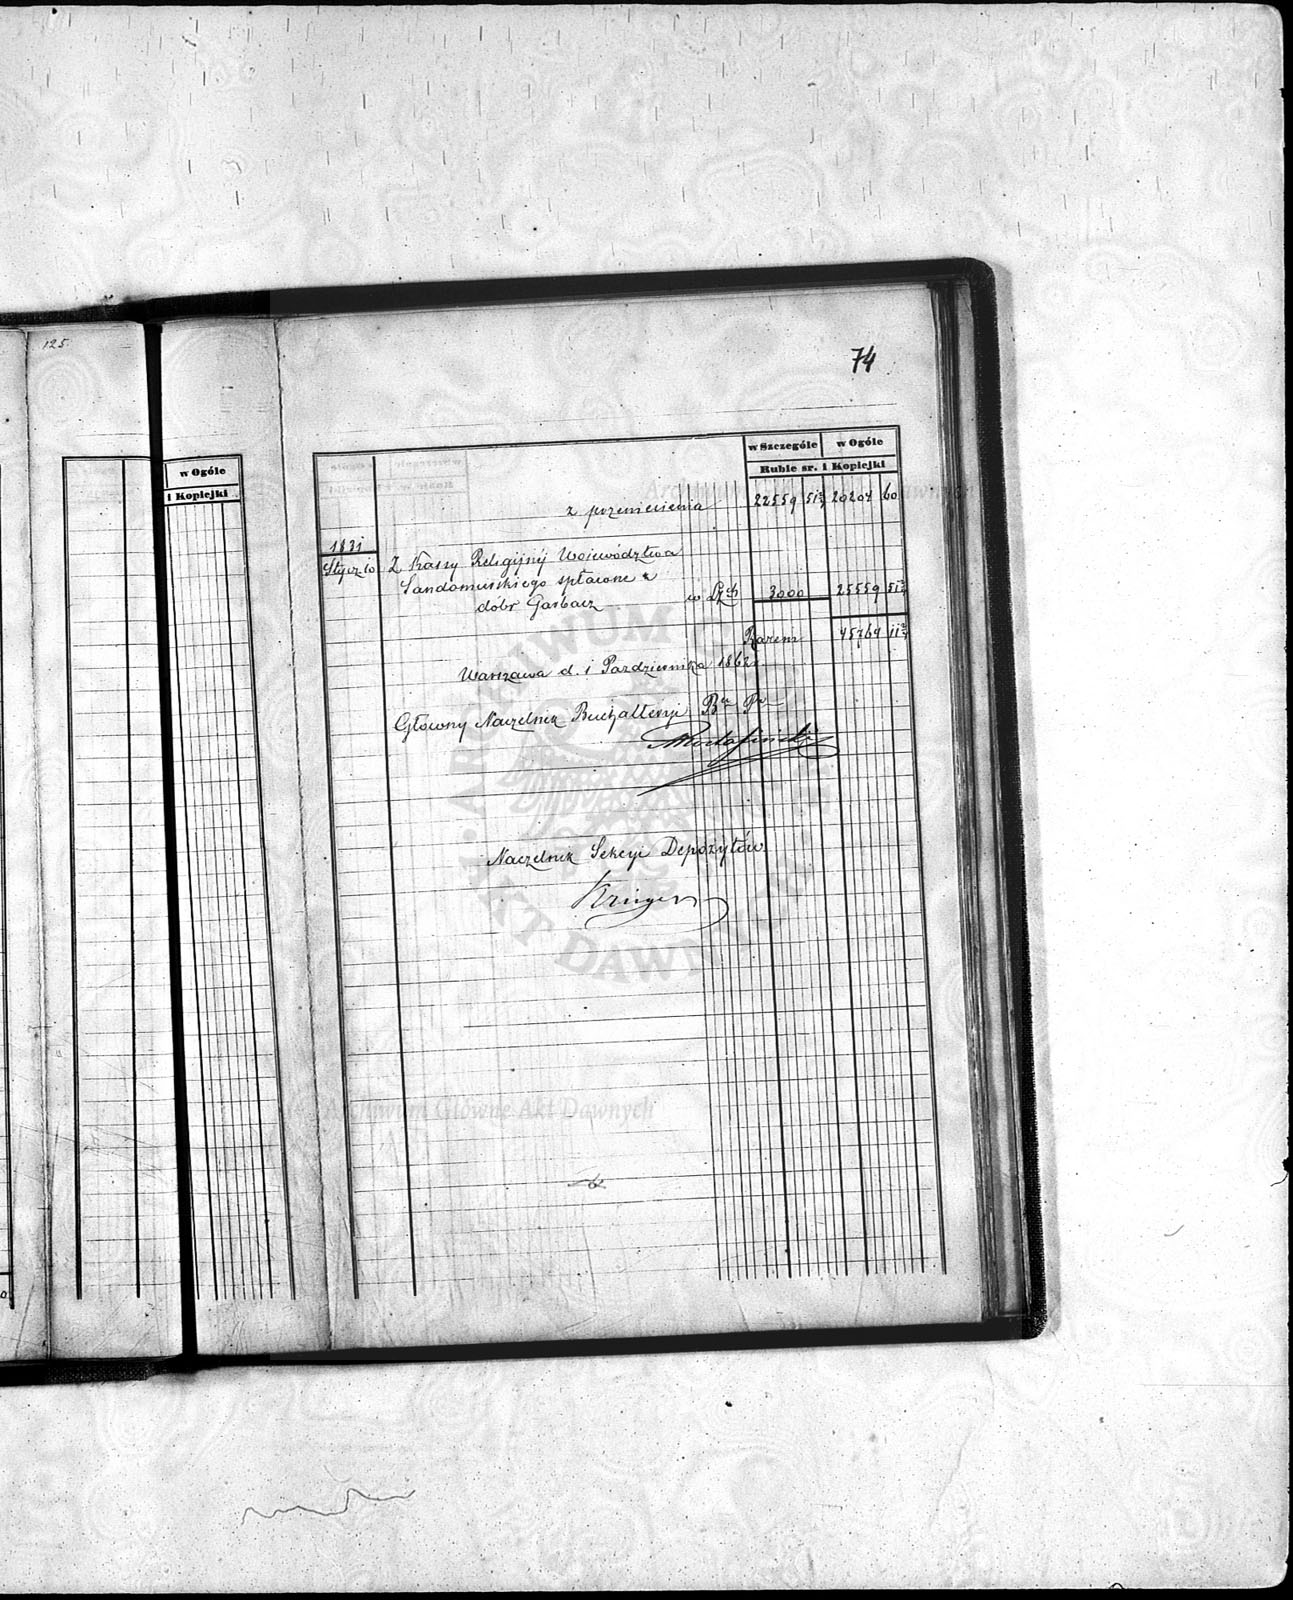 125.
w Ogóle
i Kopiejki
74
w Szczególe w Ogóle
Ruble sr. i Kopiejki
z przeniesienia 22559 51 20204 60
1831
Stycz 10 Z Kassy Religijnéj Województwa
Sandomirskiego spłacone z
dóbr Garbacz w 3000 25559 51
Razem 45764 11
Warszawa d. 1 Pazdziernika 1862 r
Główny Naczelnik Buchalteryi
Naczelnik Sekcyi Depozytów
Krüger
Archiwum Główne Akt Dawnych
ARCHIWUM GŁÓWNE AKT DAWNYCH
Archiwum Główne Akt Dawnych